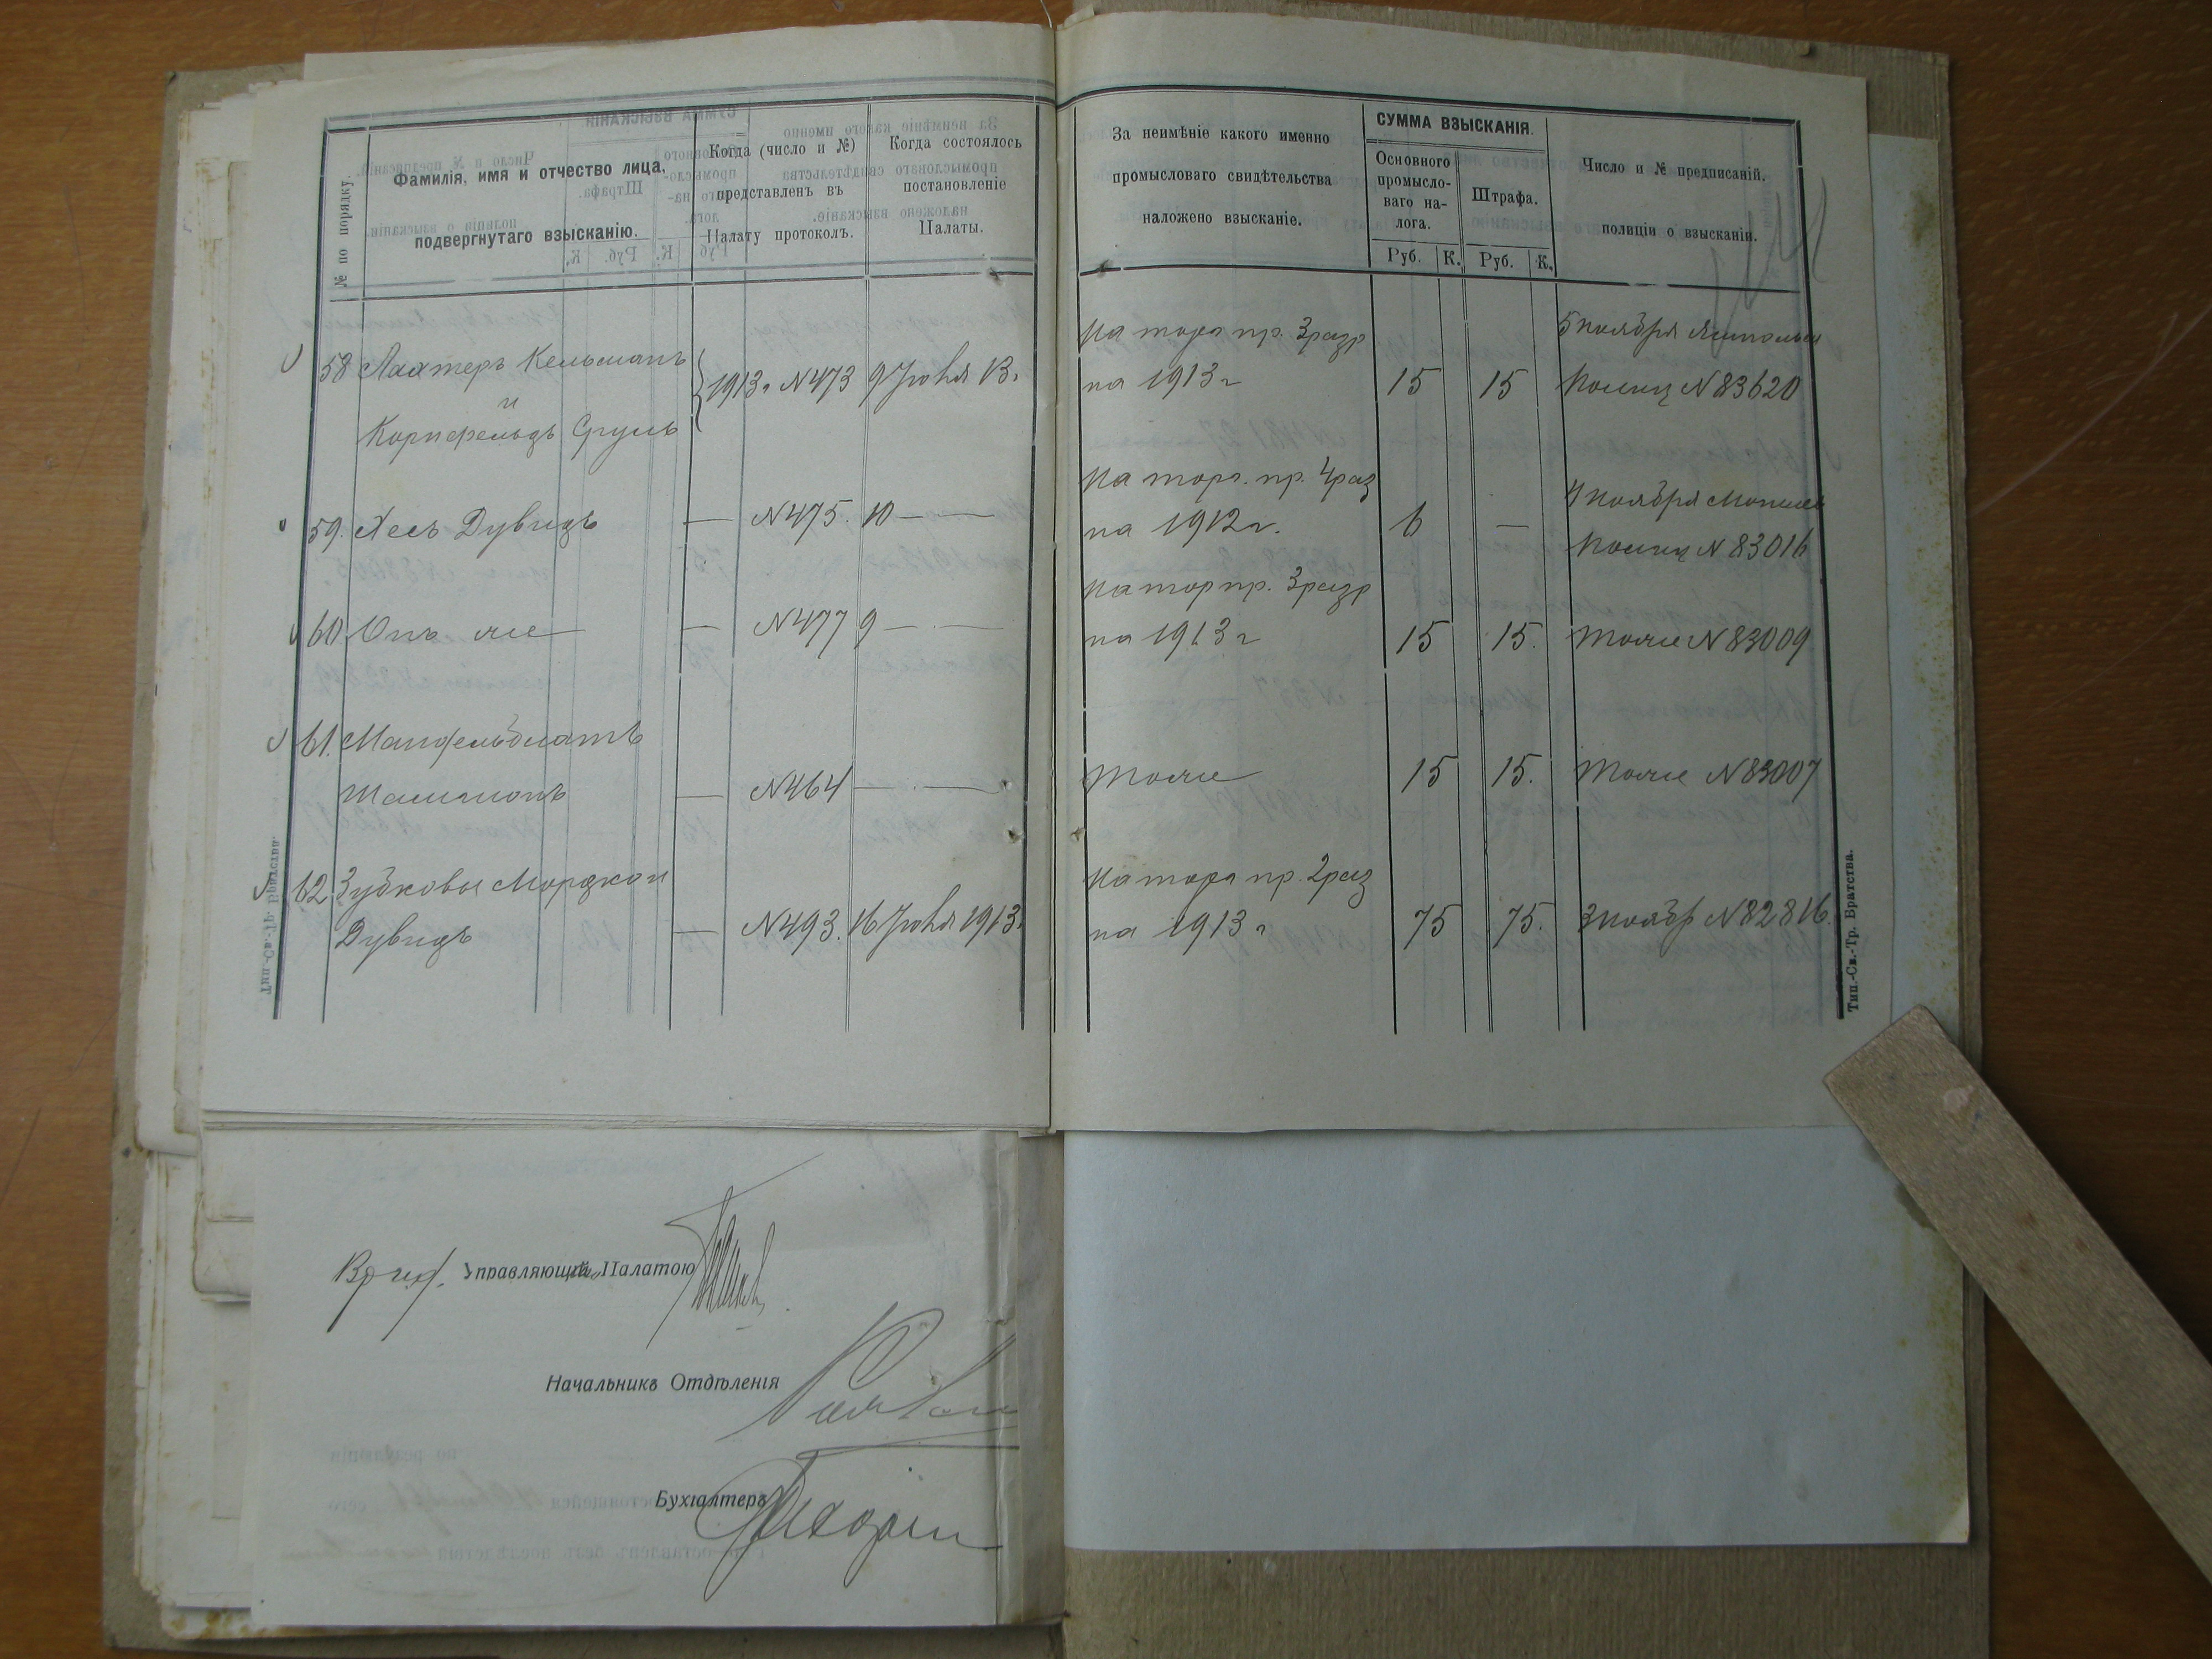 № по порядку.
Фамилія, имя и отчество лица,
подвергнутаго взысканію.
Когда (число и №)
представленъ въ
Палату протоколъ.
Когда состоялось
постановленіе
Палаты.
За неимѣніе какого именно
промысловаго свидѣтельства
наложено взысканіе.
СУММА ВЗЫСКАНІЯ.
Основного
промысло-
ваго на-
лога.
Штрафа.
Руб. К. Руб. К.
Число и № предписаній.
полиціи о взысканіи.
58 Лахтеръ Кельманъ
и
Корнфельдъ Сруль
1913 г. №473 9 Іюля 13 г.
На торг. пр. 3 разр
на 1913 г
15 15
5 Ноября Ямпольск
Полиц №83620
59. Лесъ Дувидъ — №475. 10 — —
На торг. пр. 4 раз
на 1912 г.
6 —
4 Ноября Могилев
Полиц №83016
60 Онъ же — №477 9 — . —
На тор пр. 3 разр
на 1913 г
15 15. Тоже №83009
61. Манфельблатъ
— №464 — . —
Тоже 15 15. Тоже №83007
62. Зубковы Мордко и
Дувидъ — №493. 16 Іюля 1913 г.
На торг пр. 2 раз
на 1913 г
75 75. 3 Ноябр №82816.
Тип.-Св.-Тр. Братства.
Управляющій Палатою
Начальникъ Отдѣленія
Бухгалтеръ